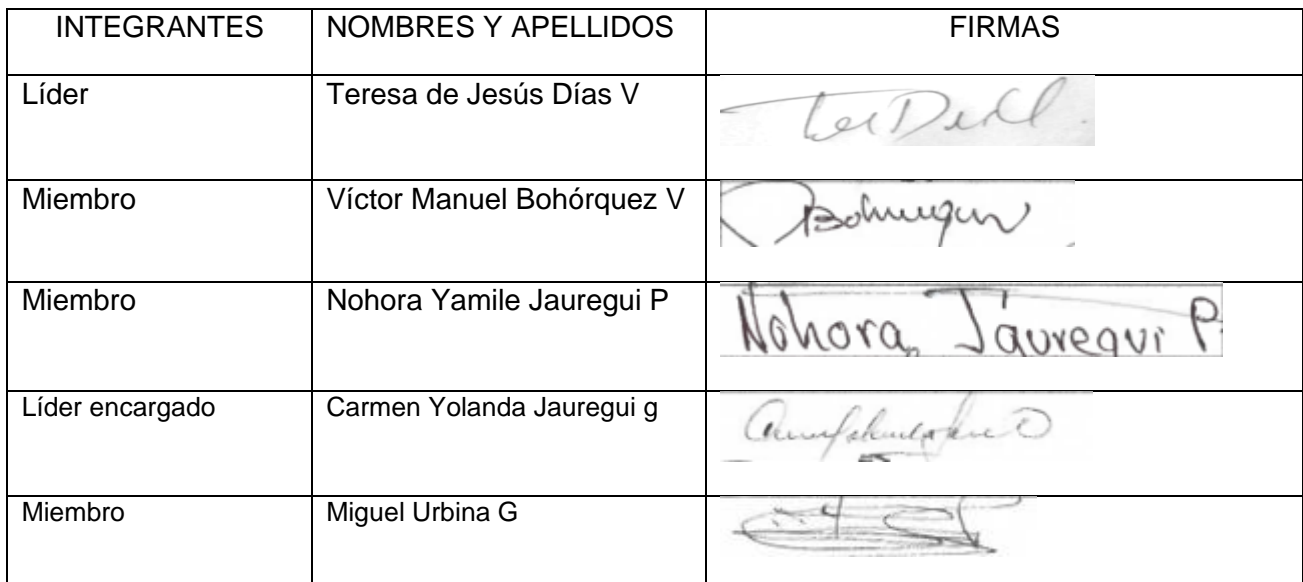 INTEGRANTES NOMBRES Y APELLIDOS FIRMAS
Líder Teresa de Jesús Días V
Miembro Víctor Manuel Bohórquez V
Miembro Nohora Yamile Jauregui P Nohora Jauregui P.
Líder encargado Carmen Yolanda Jauregui g
Miembro Miguel Urbina G